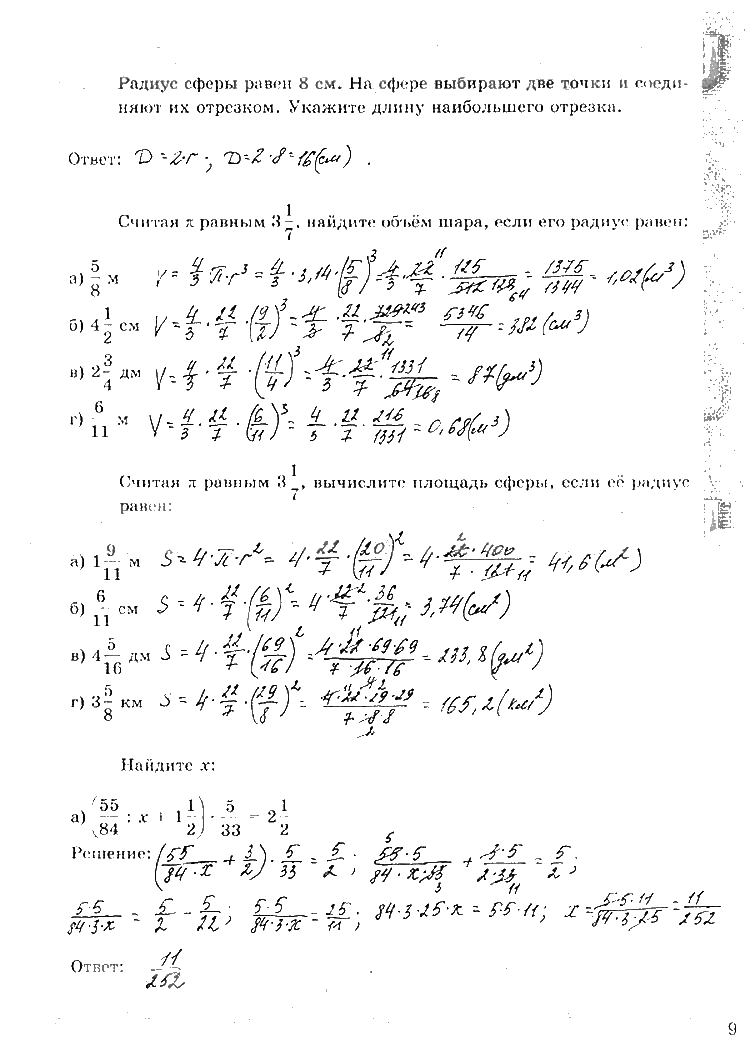 Радиус сферы равен 8 см. На сфере выбирают две точки и соеди-
няют их отрезком. Укажите длину наибольшего отрезка.
Ответ: D = 2·r ; D = 2·8 = 16 (см) .
Считая π равным 3 1/7, найдите объём шара, если его радиус равен:
а) 5/8 м V = 4/3 π·r³ = 4/3 · 3,14 · (5/8)³ = 4/3 · 22/7 · 125/512 = 1375/1344 = 1,02 (м³)
б) 4 1/2 см V = 4/3 · 22/7 · (9/2)³ = 4/3 · 22/7 · 729/8 = 5346/14 = 382 (см³)
в) 2 3/4 дм V = 4/3 · 22/7 · (11/4)³ = 4/3 · 22/7 · 1331/64 = 87 (дм³)
г) 6/11 м V = 4/3 · 22/7 · (6/11)³ = 4/3 · 22/7 · 216/1331 = 0,68 (м³)
Считая π равным 3 1/7, вычислите площадь сферы, если её радиус
равен:
а) 1 9/11 м S = 4·π·r² = 4 · 22/7 · (20/11)² = 4 · 22·400/7·121 = 41,6 (м²)
б) 6/11 см S = 4 · 22/7 · (6/11)² = 4 · 22·36/7·121 = 3,74 (см²)
в) 4 5/16 дм S = 4 · 22/7 · (69/16)² = 4·22·69·69/7·16·16 = 233,8 (дм²)
г) 3 5/8 км S = 4 · 22/7 · (29/8)² = 4·22·29·29/7·8·8 = 165,2 (км²)
Найдите x:
а) (55/84 : x + 1 1/2) · 5/33 = 2 1/2
Решение: (55/84·x + 3/2) · 5/33 = 5/2 ; 55·5/84·x·33 + 3·5/2·33 = 5/2 ;
5·5/84·3·x = 5/2 - 5/22 ; 5·5/84·3·x = 25/11 ; 84·3·25·x = 5·5·11 ; x = 5·5·11/84·3·25 = 11/252
Ответ: 11/252
9